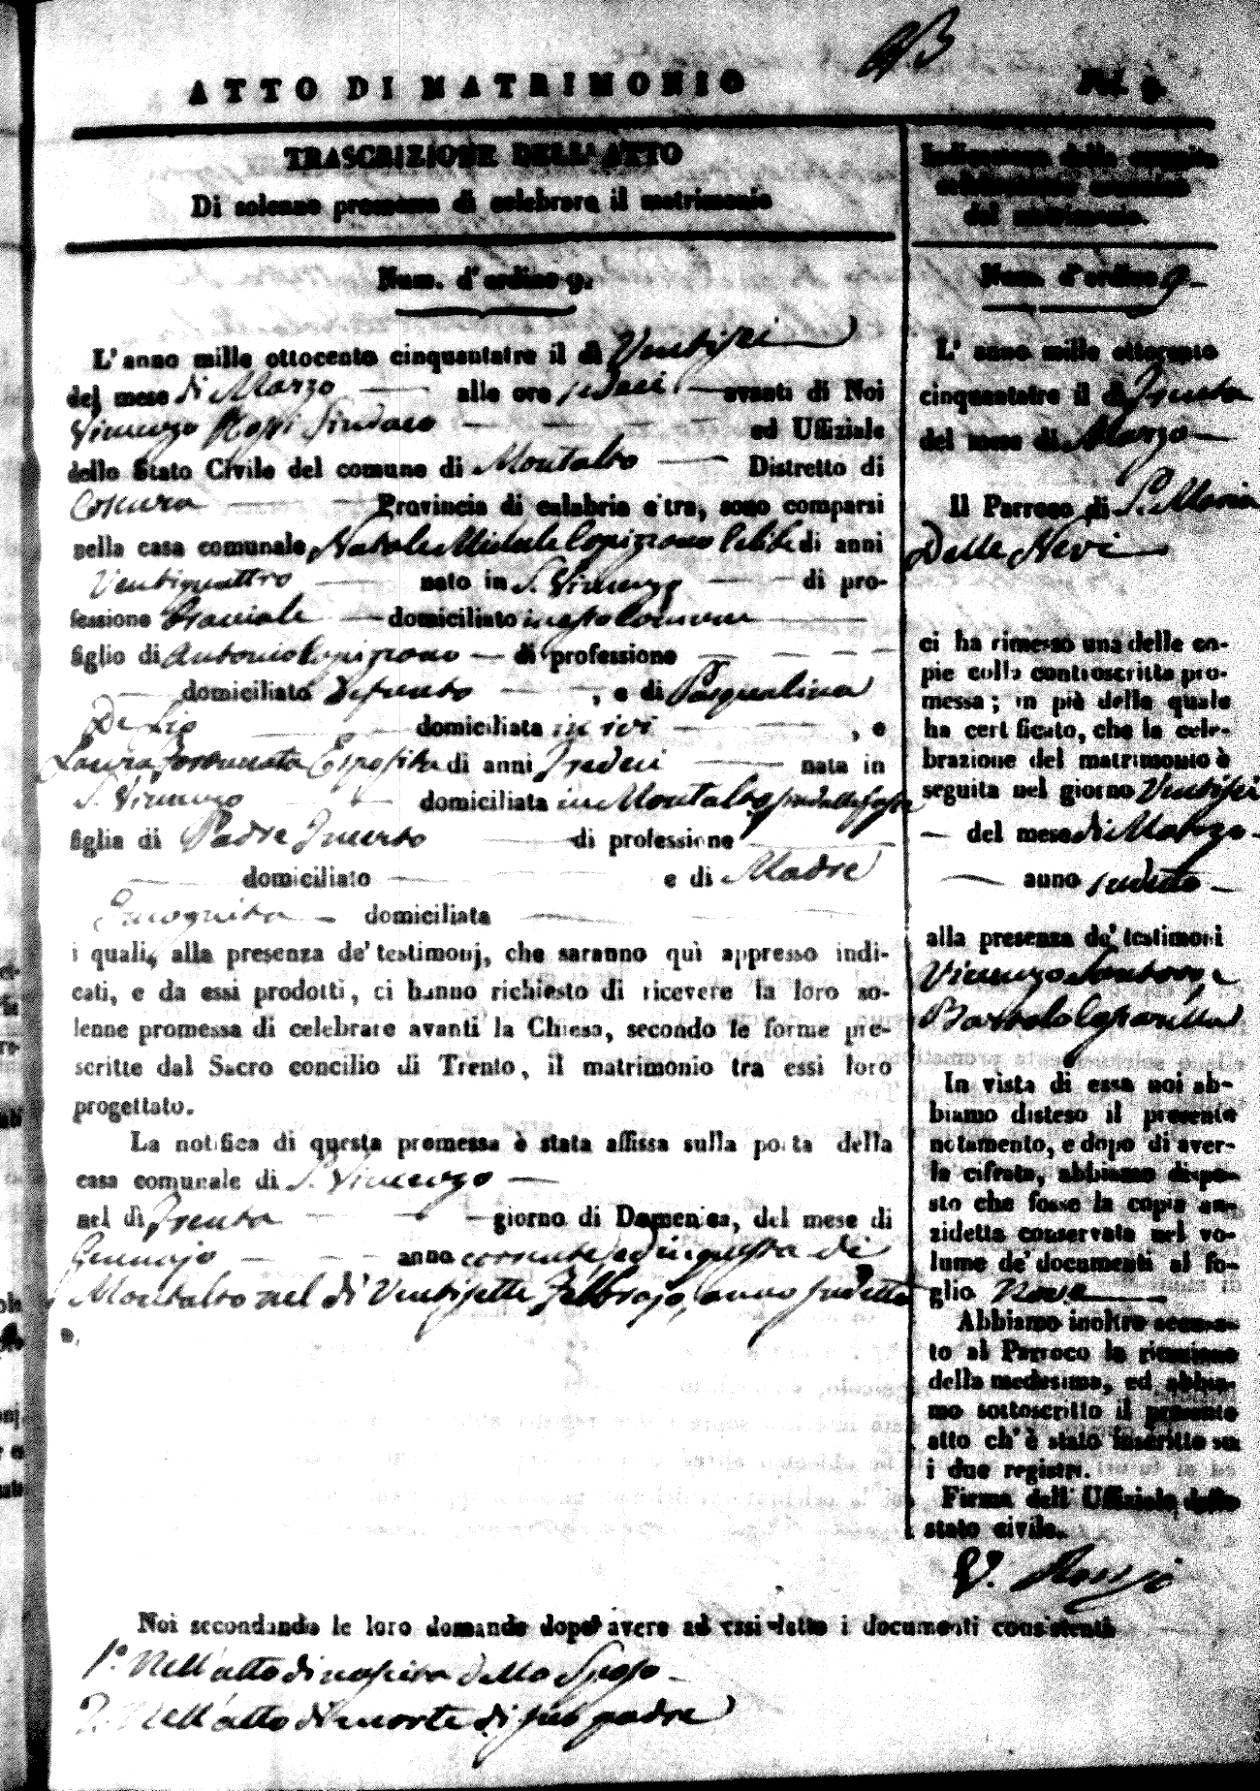 ATTO DI MATRIMONIO
Fol. 9.
TRASCRIZIONE DELL'ATTO
Di solenne promessa di celebrare il matrimonio
Num. d'ordine 9.
L'anno mille ottocento cinquantatre il dì Ventisei
del mese di Marzo alle ore sedeci avanti di Noi
Vincenzo Rossi Sindaco ed Uffiziale
dello Stato Civile del comune di Montalto Distretto di
Cosenza Provincia di calabria citra, sono comparsi
nella casa comunale Natale Michele Capizzano Celibe di anni
Ventiquattro nato in S. Vincenzo di pro-
fessione Bracciale domiciliato in esso Comune
figlio di Antonio Capizzano di professione
domiciliato Defunto , e di Pasqualina
De Lio domiciliata in ivi , e
Laura Fortunata Esposita di anni Tredeci nata in
S. Vincenzo domiciliata in Montalto
figlia di Padre Incerto di professione
domiciliato e di Madre
Incognita domiciliata
i quali, alla presenza de' testimonj, che saranno quì appresso indi-
cati, e da essi prodotti, ci hanno richiesto di ricevere la loro so-
lenne promessa di celebrare avanti la Chiesa, secondo le forme pre-
scritte dal Sacro concilio di Trento, il matrimonio tra essi loro
progettato.
La notifica di questa promessa è stata affissa sulla porta della
casa comunale di S. Vincenzo
nel dì Trenta giorno di Domenica, del mese di
Gennajo anno corrente, ed in questa di
Montalto nel dì Ventisette Febbrajo, anno sudetto
Noi secondando le loro domande dopo avere ad essi letto i documenti consistenti
1.° Nell'atto di nascita dello Sposo
2. Nell'atto di morte di suo padre
Indicazione della seguita
celebrazione canonica
del matrimonio.
Num. d'ordine 9
L'anno mille ottocento
cinquantatre il dì Trenta
del mese di Marzo
Il Parroco di S. Maria
Delle Nevi
ci ha rimesso una delle co-
pie colla controscritta pro-
messa; in piè della quale
ha certificato, che la cele-
brazione del matrimonio è
seguita nel giorno Ventisei
del mese di Marzo
anno sudetto
alla presenza de' testimoni
Vincenzo
Bartolo
In vista di essa noi ab-
biamo disteso il presente
notamento, e dopo di aver-
la cifrata, abbiamo dispo-
sto che fosse la copia an-
zidetta conservata nel vo-
lume de' documenti al fo-
glio Nove
Abbiamo inoltre accusa-
to al Parroco la ricezione
della medesima, ed abbia-
mo sottoscritto il presente
atto ch'è stato inscritto su
i due registri.
Firma dell'Uffiziale dello
stato civile.
V. Rossi